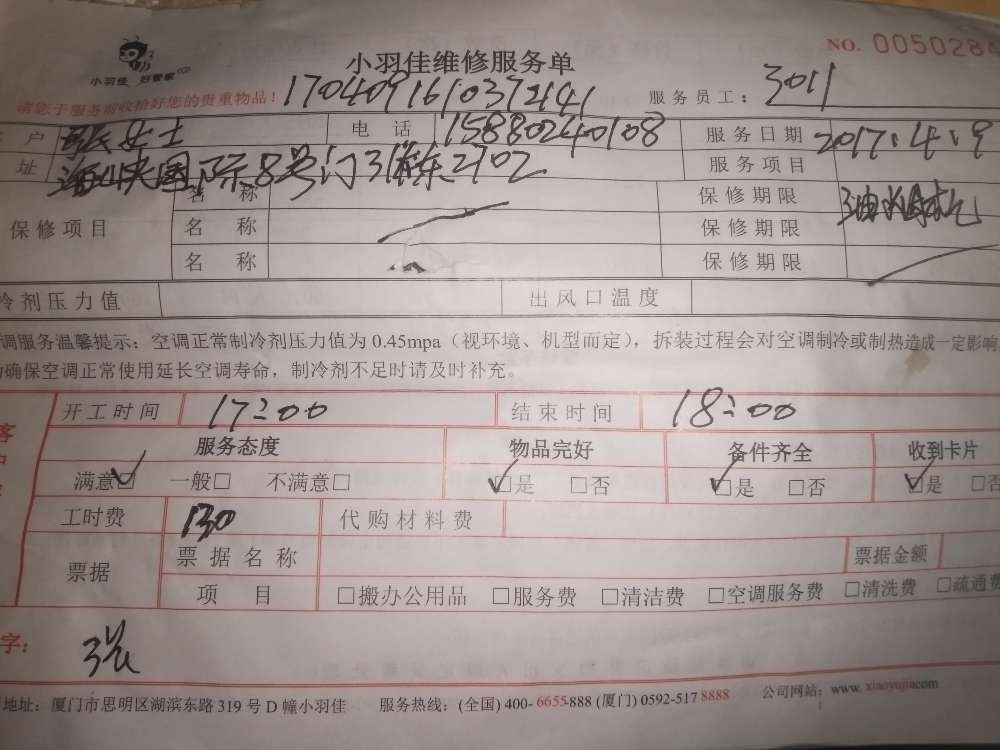 NO. 0050284
小羽佳 好管家
小羽佳维修服务单
请您于服务前收拾好您的贵重物品! 1704091610372141 服务员工: 3011
户 张女士 电话 15880240108 服务日期 2017.4.9
址 国际8号门31栋2702 服务项目
保修项目 名称 保修期限
名称 保修期限
名称 保修期限
冷剂压力值 出风口温度
调服务温馨提示: 空调正常制冷剂压力值为 0.45mpa (视环境、机型而定), 拆装过程会对空调制冷或制热造成一定影响
确保空调正常使用延长空调寿命, 制冷剂不足时请及时补充。
开工时间 17:00 结束时间 18:00
服务态度 物品完好 备件齐全 收到卡片
满意□ 一般□ 不满意□ □是 □否 □是 □否 □是 □否
工时费 130 代购材料费
票据 票据名称 票据金额
项目 □搬办公用品 □服务费 □清洁费 □空调服务费 □清洗费 □疏通费
字: 张
地址: 厦门市思明区湖滨东路 319 号 D 幢小羽佳 服务热线: (全国) 400-6655-888 (厦门) 0592-517 8888 公司网站: www.xiaoyujia.com